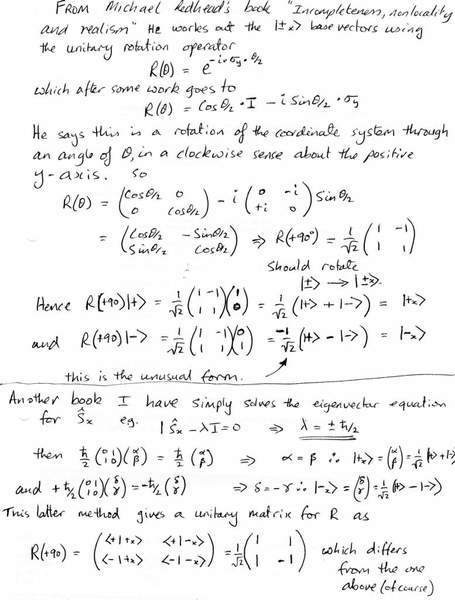 From Michael Redhead's book "Incompleteness, nonlocality
and realism" He works out the |±x> base vectors using
the unitary rotation operator
R(θ) = e^{-i·σy·θ/2}
which after some work goes to
R(θ) = Cosθ/2 · I - i Sinθ/2 · σy
He says this is a rotation of the coordinate system through
an angle of θ, in a clockwise sense about the positive
y-axis. so
R(θ) = (Cosθ/2 0; 0 Cosθ/2) - i (0 -i; +i 0) Sinθ/2
= (Cosθ/2 -Sinθ/2; Sinθ/2 Cosθ/2) ⇒ R(+90°) = 1/√2 (1 -1; 1 1)
should rotate
|±> → |±x>.
Hence R(+90)|+> = 1/√2 (1 -1; 1 1)(1; 0) = 1/√2 (|+> + |->) = |+x>
and R(+90)|-> = 1/√2 (1 -1; 1 1)(0; 1) = -1/√2 (|+> - |->) = |-x>
this is the unusual form.
Another book I have simply solves the eigenvector equation
for Ŝx eg. |Ŝx - λI| = 0 ⇒ λ = ± ħ/2
then ħ/2 (0 1; 1 0)(α; β) = ħ/2 (α; β) ⇒ α = β ∴ |+x> = (α; β) = 1/√2 |+> + |->
and +ħ/2 (0 1; 1 0)(δ; γ) = -ħ/2 (δ; γ) ⇒ δ = -γ ∴ |-x> = (δ; γ) = 1/√2 |+> - |->
This latter method gives a unitary matrix for R as
R(+90) = (<+|+x> <+|-x>; <-|+x> <-|-x>) = 1/√2 (1 1; 1 -1) which differs
from the one
above (of course)